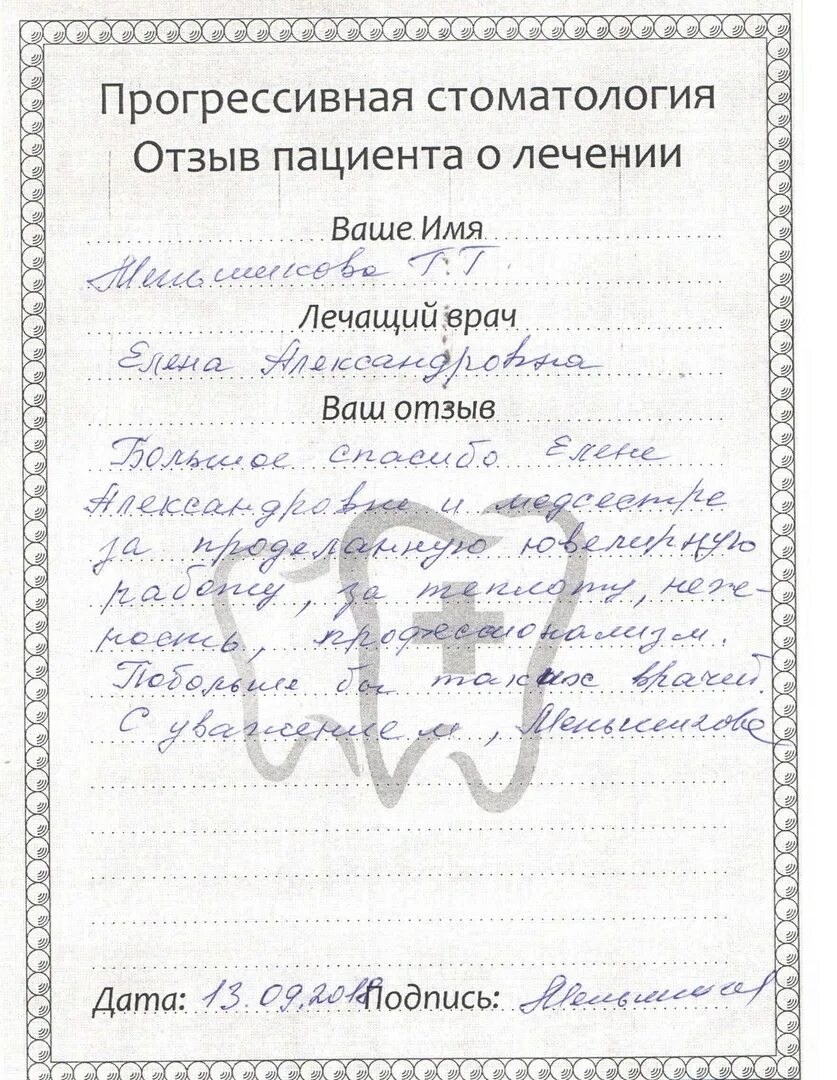 Прогрессивная стоматология
Отзыв пациента о лечении
Ваше Имя
Меньшикова Т.Т.
Лечащий врач
Елена Александровна
Ваш отзыв
Большое спасибо Елене
Александровне и медсестре
за проделанную ювелирную
работу, за теплоту, неж-
ность, профессионализм.
Побольше бы таких врачей.
С уважением, Меньшикова
Дата: 13.09.2018 Подпись: